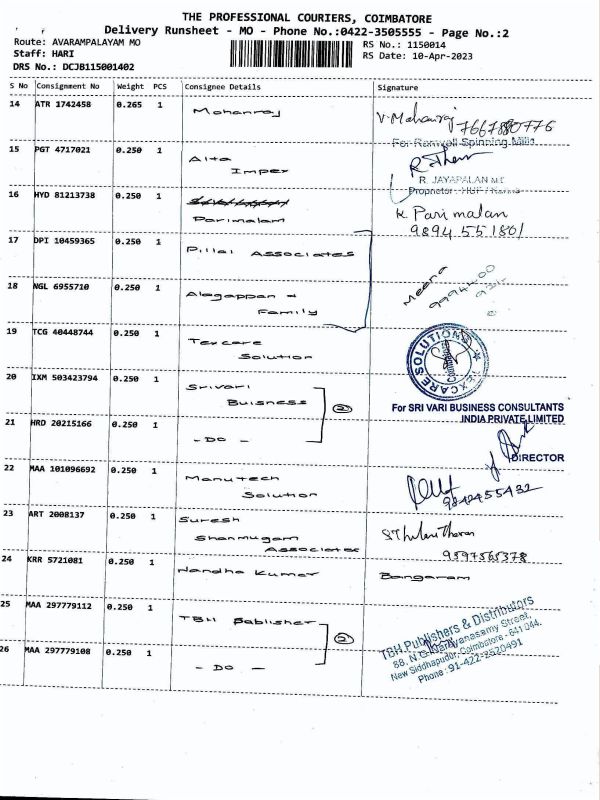 THE PROFESSIONAL COURIERS, COIMBATORE
Delivery Runsheet - MO - Phone No.:0422-3505555 - Page No.:2
Route: AVARAMPALAYAM MO
RS No.: 1150014
Staff: HARI
RS Date: 10-Apr-2023
DRS No.: DCJB115001402
S No Consignment No Weight PCS Consignee Details Signature
14 ATR 1742458 0.265 1 Mohanraj
7667880776
For Ramvell Spinning Mills
15 PGT 4717021 0.250 1 Alta
Impex
R. JAYAPALAN
Proprietor
16 HYD 81213738 0.250 1
Parimalam K Parimalan
9894551801
17 DPI 10459365 0.250 1 Pillai Associates
18 NGL 6955710 0.250 1 Alagappan &
Family
Meena
19 TCG 40448744 0.250 1 Texcare
Solution
TEXCARE SOLUTIONS
20 IXM 503423794 0.250 1 Srivari
Buisness
2
For SRI VARI BUSINESS CONSULTANTS
INDIA PRIVATE LIMITED
21 HRD 20215166 0.250 1
- DO -
DIRECTOR
22 MAA 101096692 0.250 1 Manutech
Solution
9842455432
23 ART 2008137 0.250 1 Suresh
Shanmugam
Associates
9597565378
24 KRR 5721081 0.250 1 Nandha Kumar Bangaram
25 MAA 297779112 0.250 1 TBH Bablisher
2
TBH Publishers & Distributors
88, N.G. Narayanasamy Street,
New Siddhapudur, Coimbatore - 641 044.
Phone : 91-422-2520491
26 MAA 297779108 0.250 1
- DO -